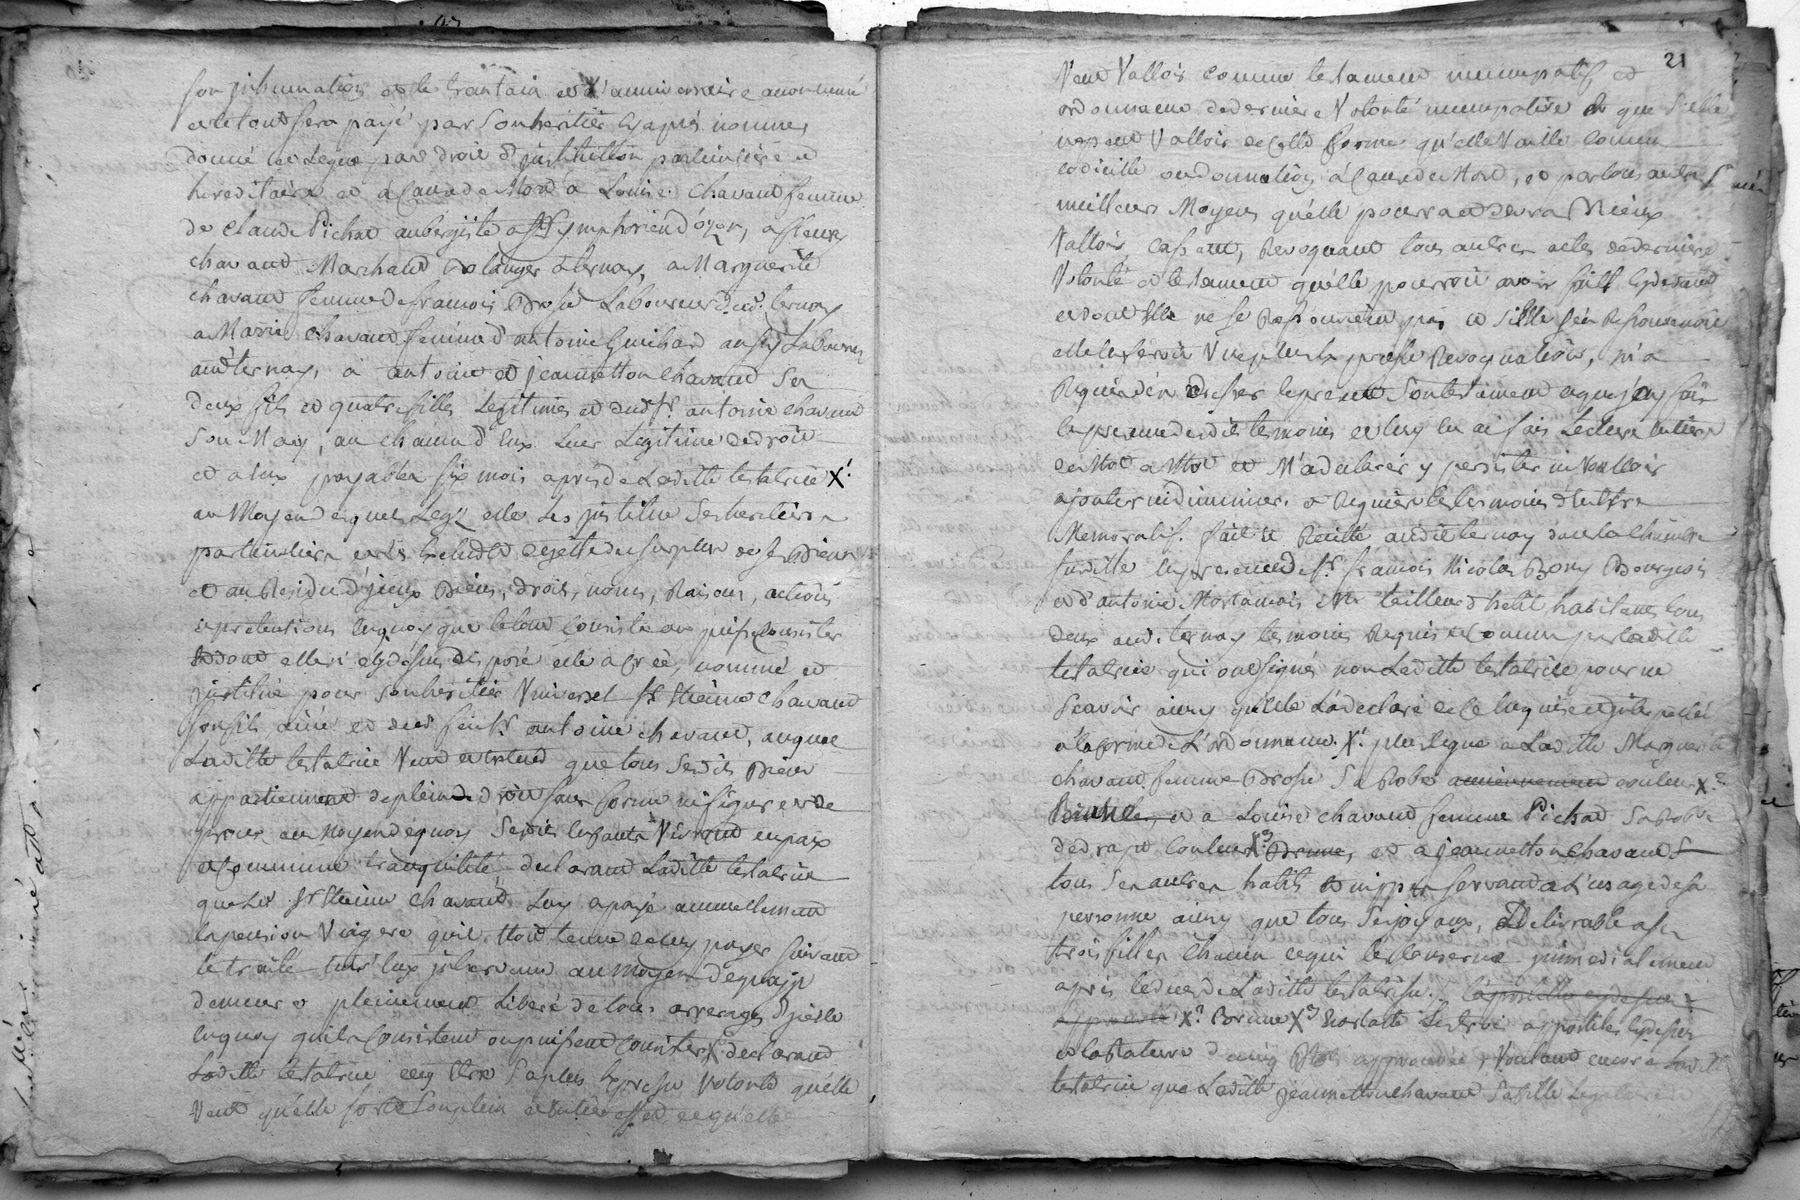 son inhumation et le trantain et l'anniversaire accoutumé
et le tout sera payé par son heritiér cy aprés nommé,
donné et legue par droit d'institution particuliére et
hereditaire et a cause de Mort a Louise chavand femme
de Claude Pichat aubergiste a St Symphorien d'ozon, a
chavand Marchand Boulanger a ternay, a Marguerite
chavand femme de francois Brosse Laboureur dud. ternay
a Marie chavand femme d'antoine Guichard aussy Laboureur
aud. ternay, a antoine et jeannetton chavand ses
deux fils et quatre filles Legitimes et dud. Sr. antoine chavand
son Mary, au chacun d'eux leur Legitime de droit
et a eux payables six mois aprés de Laditte testatrice X1
au Moyen desquels Legs elle les institue ses heritiers
particuliers et les exclud et rejette du surplus de ses Biens
et au Residu d'jceux Biens, droits, noms, Raisons, actions
et pretentions en quoy que le tout consiste ou puisse consister
et dont elle n'a cy dessus disposé elle a créé, nommé et
institué pour son heritiér Universel Sr. Etienne Chavand
son fils ainé et dud. feu Sr. antoine chavand, auquel
Laditte testatrice Veut et entend que tous sesdits Biens
appartiennent de plein droit sans forme ni figure de
procés au Moyen de quoy sesdits enfants Vivront en paix
et commune tranquilité, declarant Laditte testatrice
que led. Sr. Etienne chavand, luy a payé annuellement
la pension Viagere qu'il étoit tenu de luy payer suivant
le traité entr'eux jntervenu au moyen de quoy jl
demeure pleinement Liberé de tous arrerages d'jcelle
en quoy qu'ils consistent ou puissent consister, declarant
Laditte testatrice que telle sa plus expresse Volonté qu'elle
Veut qu'elle sorte son plein et entiér effet et qu'elle
21
Veut Valloir comme testament nuncupatif et
ordonnance de derniere Volonté nuncupative et que si elle
ne peut Valloir de cette forme qu'elle Vaille comme
codicille ou donnation á Cause de Mort, et par tous autres
meilleurs Moyens qu'elle pourra et devra Mieux
Valloir, cassant, Revoquant tous autres actes de derniere
Volonté et testament qu'elle pourroit avoir fait cy devant
et dont Elle ne se Ressouvient pas et si Elle s'en Ressouvenoit
elle en feroit Vne plus expresse Revoquation, m'a
Requis de Rediger le present son testament ce que j'ay fait
en presence desdits temoins et luy en ai fait Lecture entiere
de Mot a Mot et M'a declaré y persister ni Vouloir
ajouter ni diminuer et Requiere les temoins d'en être
Memoratif. fait et Recité audit ternay dans la chambre
susditte en presence de Sr. francois Nicolas Bony Bourgeois
et d'antoine Mortamais Me tailleur d'habit habitant tous
deux aud. ternay temoins Requis et connus par laditte
testatrice qui ont signés non Laditte testatrice pour ne
scavoir ainsy qu'elle L'a declaré de ce enquise et jnterpellée
á la forme de L'ordonnance. X1 plus legue a Laditte Marguerite
chavand femme Brosse sa Robe couleur X2
et a Louise chavand femme Pichat sa robe
de drap couleur X3 Brune, et a jeannetton chavand
tous ses autres habits et nippes servant a L'usage de sa
personne ainsy que tous ses joyaux, Delivrable a ses
trois filles chacun ce qui les conserne jmmediatement
aprés le deces de Laditte testatrice. L'apostille cy dessus
approuvé X2 Brune X3 apostilles cy dessus
et la Rature de cinq Mots approuvée, Voulant encore Laditte
testatrice que Laditte jeannetton chavand sa fille